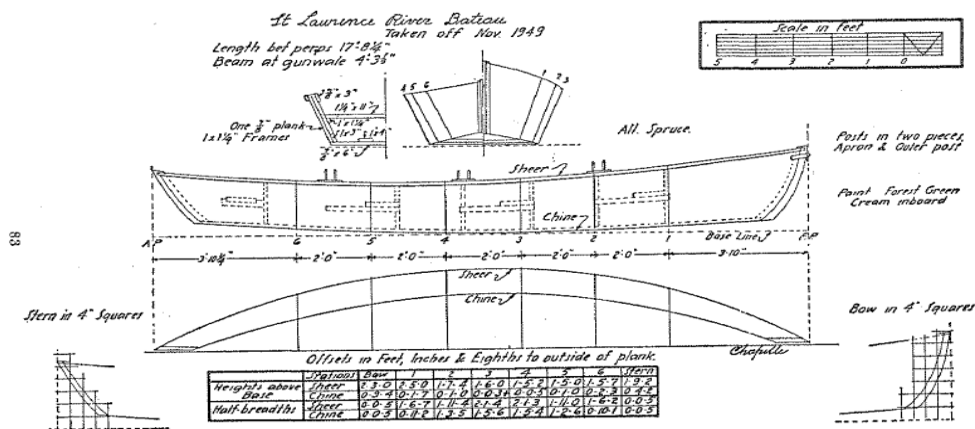 St Laurence River Bateau
Taken off Nov. 1949
Length bet perps 17'-8¼"
Beam at gunwale 4'-3½"
Scale in feet
5 4 3 2 1 0
4 5 6
1 2 3
One ⅞" plank
1x1¼" Frames
All Spruce.
Posts in two pieces,
Apron & Outer post
Sheer
Paint Forest Green
Cream inboard
Chine
83
A.P. 6 5 4 3 2 1 Base Line F.P.
3'-10¼" 2'-0" 2'-0" 2'-0" 2'-0" 2'-0" 3'-10"
Sheer
Chine
Stern in 4" Squares
Bow in 4" Squares
Chapelle
Offsets in Feet, Inches & Eighths to outside of plank.
Stations Bow 1 2 3 4 5 6 Stern
Heights above Base Sheer 2-3-0 1-7-4 1-6-0 1-5-2 1-5-0 1-5-7 1-9-2
Chine 0-3-4 0-1-7 0-1-0 0-0-5 0-1-0 0-2-3
Half-breadths Sheer 0-0-5 1-6-7 1-11-4 2-1-4 2-1-3 1-11-0 1-6-2 0-0-5
Chine 0-0-5 0-11-2 1-3-5 1-5-6 1-5-4 1-2-6 0-10-1 0-0-5